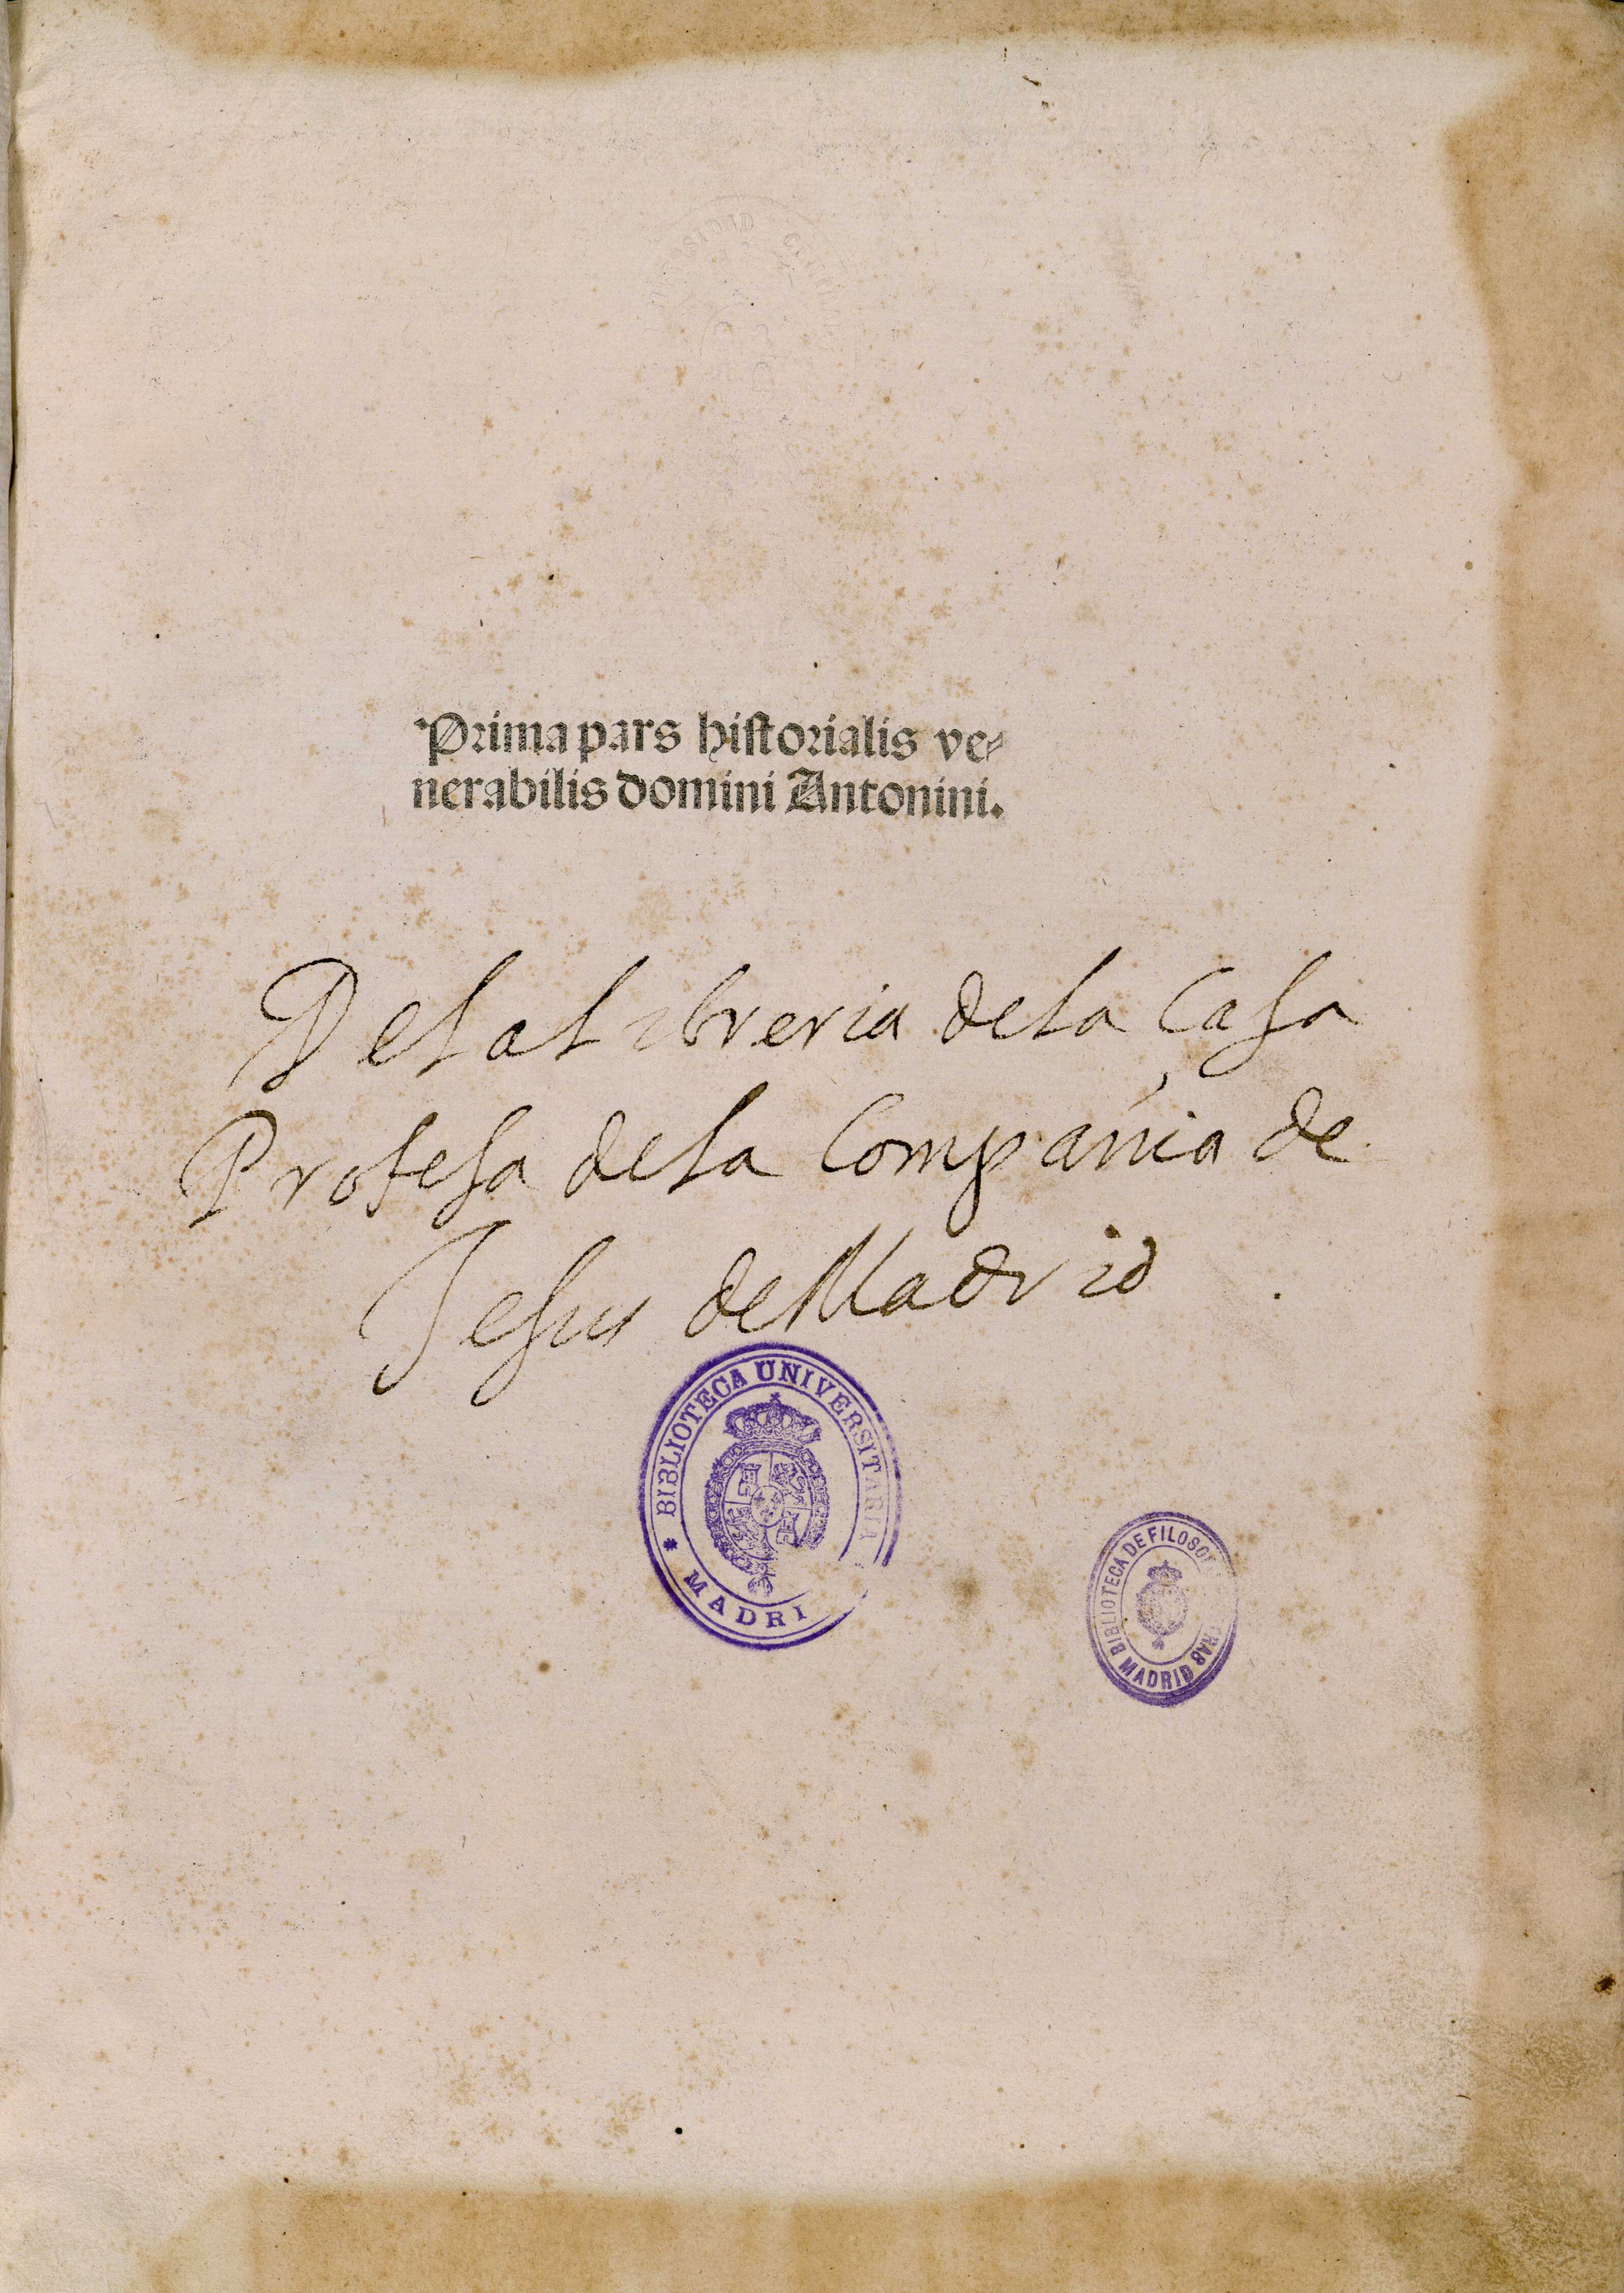 Prima pars hiſtorialis ve⸗
nerabilis domini Antonini.
De la Libreria de la Caſa
Profeſa de la Compañia de
Jeſus de Madrid
BIBLIOTECA UNIVERSITARIA
* MADRI
BIBLIOTECA DE FILOSO
MADRID